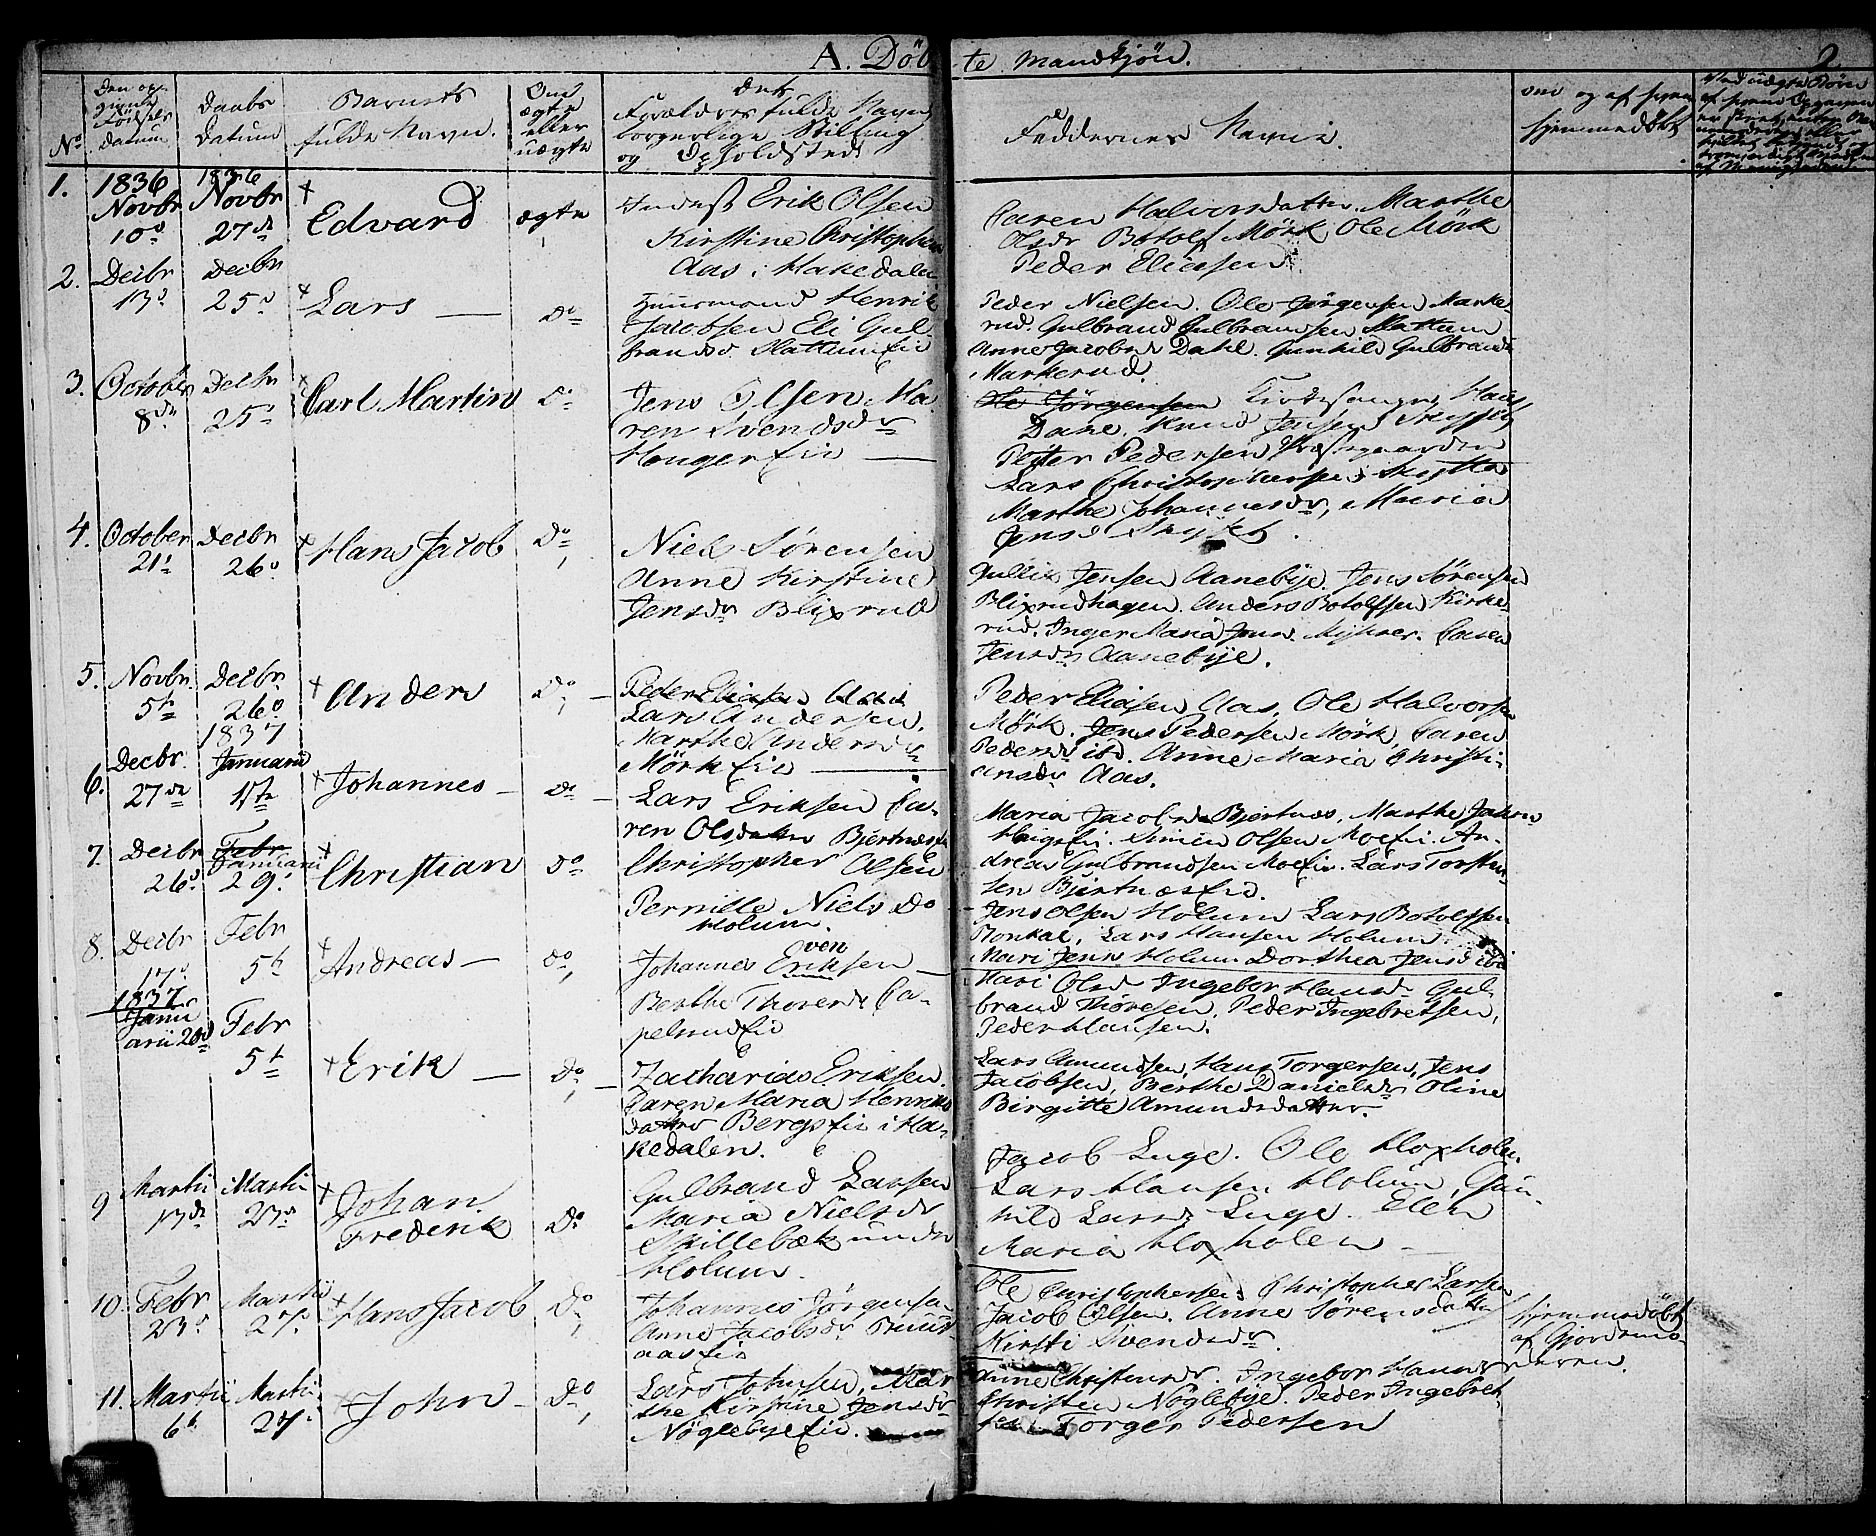 A. Döb-te Mandkjön. 2
No
Den op-
givne
Födsels
Datum
Daabs
Datum
Barnets
fulde Navn.
Om
ægte
eller
uægte
Forældres fulde Navn,
borgerlige Stilling
og Opholdsted
Faddernes Navne.
om og af hvem
hjemmedöbt
1. 1836 Novbr 10d
1836 Novbr 27de
Edvard
ægte
Erik Olsen
Kirstine Christophersd
Aas i Hakedalen
Caren Halvorsdatter. Marthe
Olsdr Botolf Mörk, Ole Mörk
Peder Eliasen.
2. Decbr 13d
Decbr 25d
Lars —
Do
Huusmand Henrik
Jacobsen Eli Gul-
brandsd. Hattumeie
Peder Nielsen. Ole Jörgensen Marke-
rud. Gulbrand Gulbrandsen Hattum
Anne Jacobsd Dahl. Gunhild Gulbrands
Markerud.
3. October 8de
Decbr 25d
Carl Martin
Do
Jens Olsen. Ma-
ren Svendsdr
Hougereie —
Ole Jörgensen Kirkesanger Hans
Dahl. Knud Jensen Skyset
Petter Pedersen Præstegaarden
Lars Christophersen Skytta
Marthe Johannesdr, Maria
Jensd Skyset.
4. October 21d
Decbr 26d
Hans Jacob
Do
Niels Sörensen
Anne Kirstine
Jensdr Blixrud
Gullik Jensen Aanebye. Jens Sörensen
Blixrudhagen. Anders Botolfsen Kirke-
rud. Inger Maria Jensd. Myhrer. Caren
Jensdr Aanebye.
5. Novbr. 5te
Decbr. 26d
Anders
Do —
Peder Eliasen Aas
Lars Andersen.
Marthe Andersdr
Mörkeie —
Peder Eliasen Aas, Ole Halvorsen
Mörk. Jens Pedersen Mörk, Caren
Pedersd ibd. Anne Maria Christi-
ansdr Aas.
6. Decbr. 27de
1837 Januarii 1ste
Johannes —
Do —
Lars Eriksen Ca-
ren Olsdatter Bjertneseie
Maria Jacobsdr Bjertnes, Marthe Johns
Haugseie. Simen Olsen Moeeie. An-
dreas Gulbrandsen Moeeie. Lars Torsten-
sen Bjertnæseie.
7. Decbr 26d
Febr
Januarii 29d
Christian
Do
Christopher Olsen
Pernille Niels Do
Holum.
Jens Olsen Holum Lars Botolfsen
Bonkal, Lars Hansen Holum
Mari Jensd Holum Dorthea Jensd ibd
8. Decbr 17d
Febr 5te
Andreas —
Do
Johannes Eriksen
ven
Berthe Thoresdr Ca-
pelsrudeie
Mari Olsd Ingebor Hansd Gul-
brand Thoresen, Peder Ingebretsen,
Peder Hansen.
1837
Janu-
arii 20d
Febr 5te
Erik —
Do —
Zacharias Eriksen.
Caren Maria Henriks
datter Bergseie i Ha-
kedalen.
Lars Amundsen, Hans Torgersen, Jens
Jacobsen, Berthe Danielsdr Oline
Birgitte Amundsdatter.
9 Martii 13de
Martii 23d
Johan
Frederik
Do
Gulbrand Larsen
Maria Nielsdr
Skillebæk under
Holum.
Jacob Luge. Ole Kloxholen.
Lars Hansen Holum, Gun-
hild Larsdr Luge. Elen
Maria Kloxholen —
10. Febr 23d
Martii 27d
Hans Jacob
Do
Johannes Jörgensen
Anne Jacobsdr Bruus-
aaseie
Ole Christophersen, Christopher Larsen
Jacob Olsen. Anne Sörensdatter
Kirsti Svendsdr.
hjemmedöbt
af Gjordemo-
deren.
11. Martii 6te
Martii 27d
John —
Do
Lars Johnsen, Mar-
the Kirstine Jensdr
Nöglebyeeie.
Anne Christensdr. Ingebor Hansdr
Christen Nöglebye. Peder Ingebret-
sen Torger Pedersen